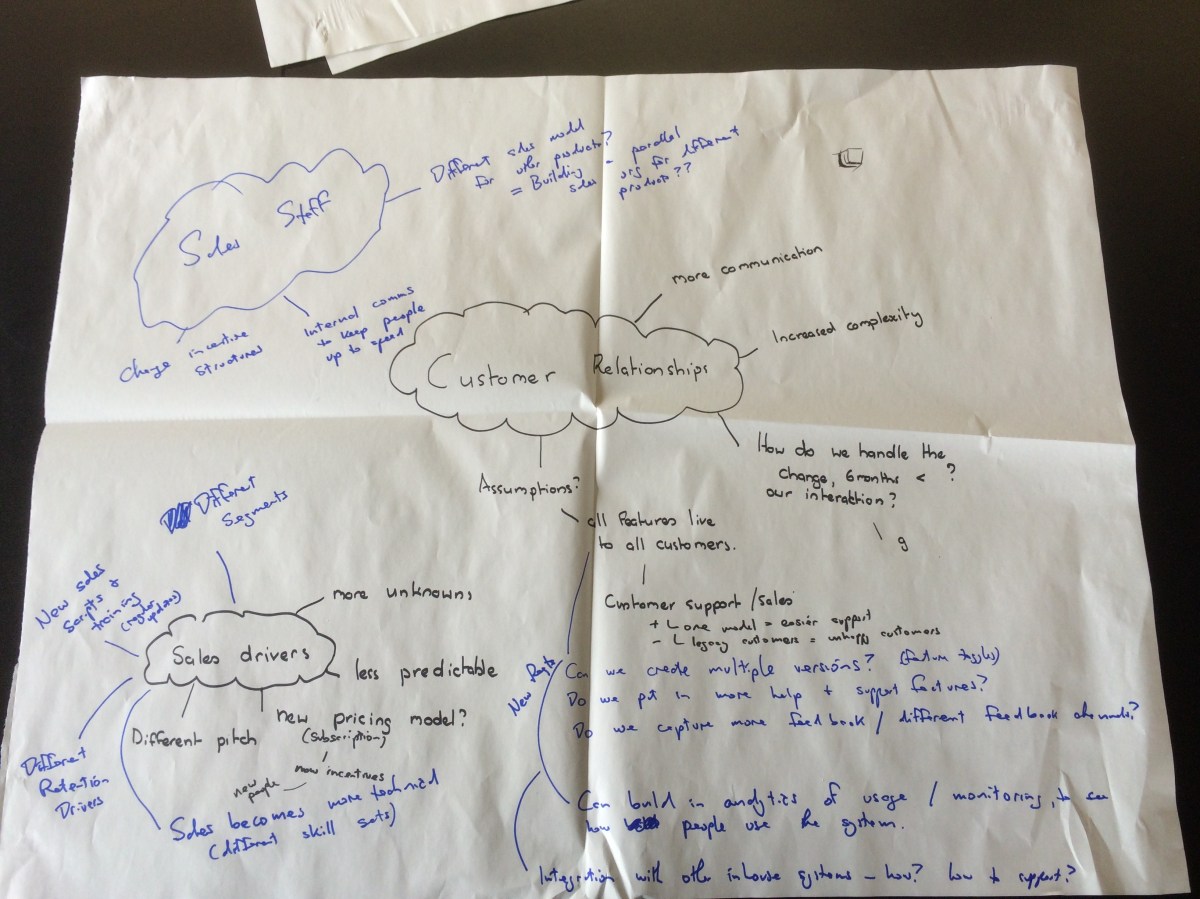 Sales Staff
Different sales model
for other products?
= Building - parallel
sales org for different
products??
Internal comms
to keep people
up to speed
Change incentive
structures
Customer Relationships
more communication
Increased complexity
How do we handle the
change, 6 months < ?
our interaction?
g
Assumptions?
all features live
to all customers.
Customer support/sales
+ L one model = easier support
- L legacy customers = unhappy customers
New
Can we create multiple versions? (feature toggles)
Do we put in more help + support features?
Do we capture more feedback / different feedback channels?
Can build in analytics of usage / monitoring, to see
how people use the system.
Integration with other inhouse systems - how? how to support?
Sales drivers
Different
Segments
more unknowns
less predictable
new pricing model?
(subscription)
new incentives
new
people
Different pitch
New sales
scripts &
training
(regular
updates)
Different
Retention
Drivers
Sales becomes more technical
(different skill sets)